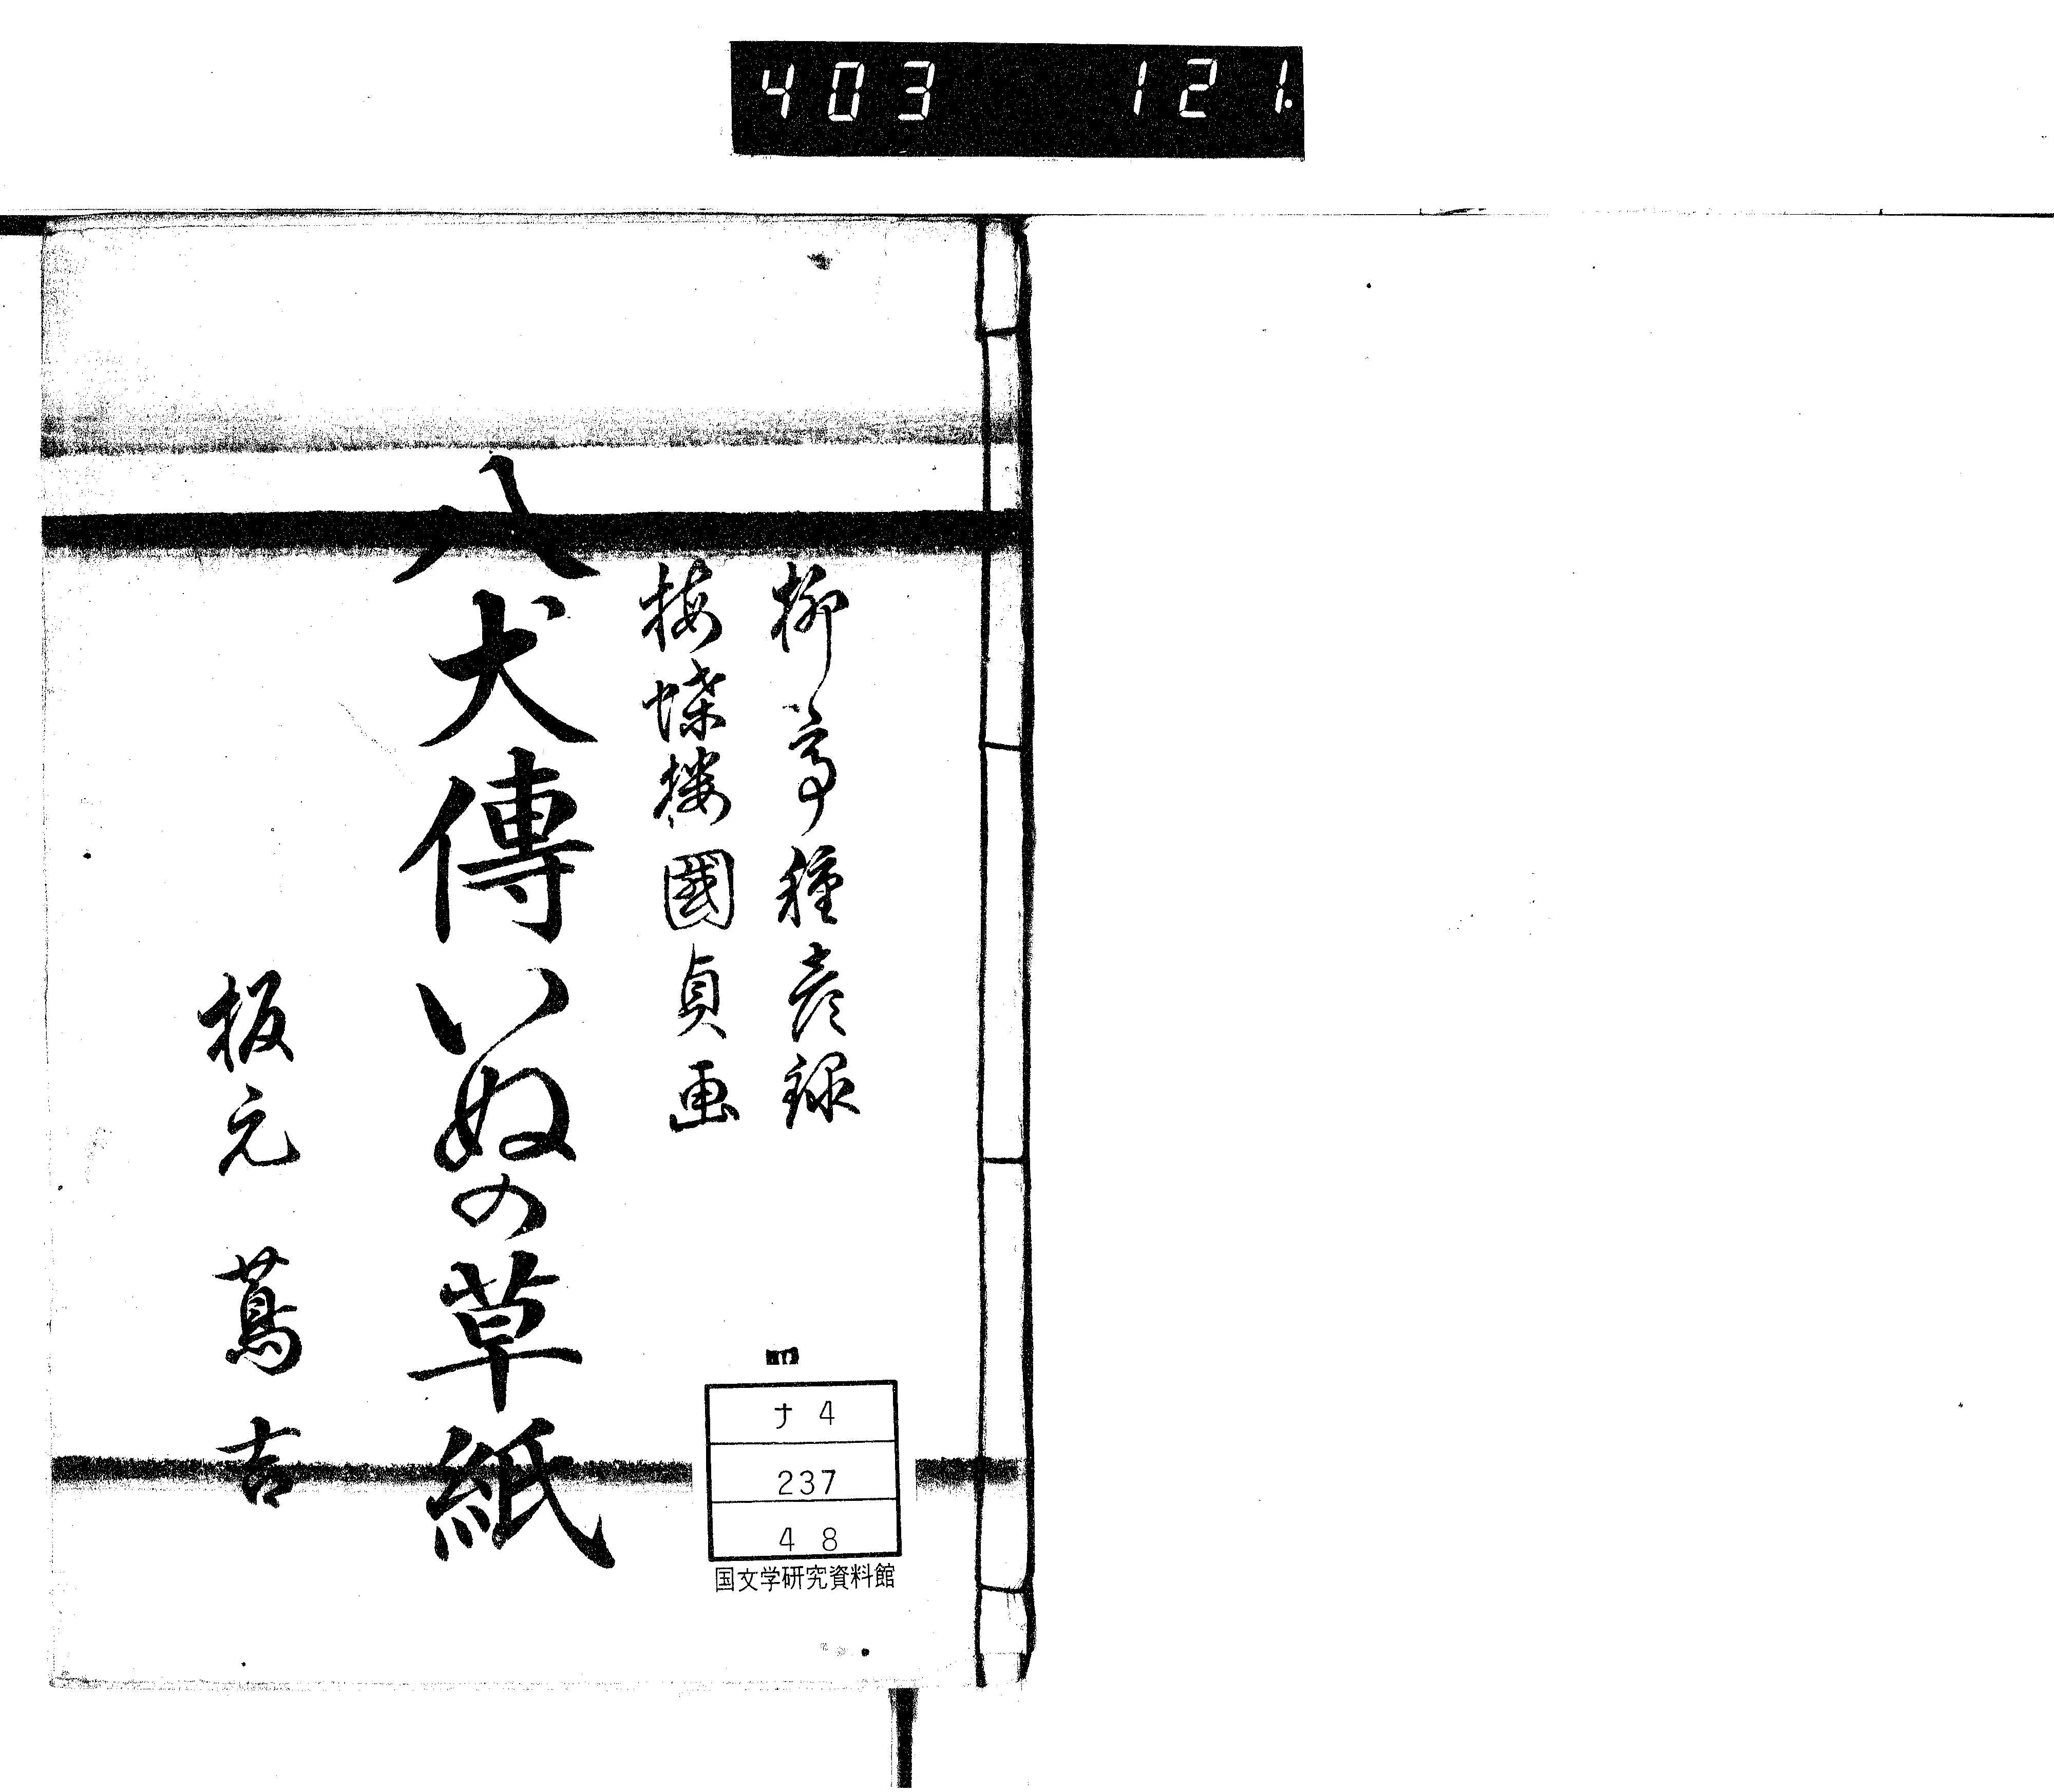 403 121.
柳亭種彦録
梅蝶楼國貞画
八犬傳いぬの草紙
板元 蔦吉
ナ4
237
48
国文学研究資料館